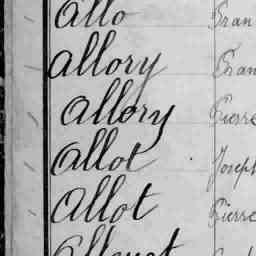 Allo Fran
Allory Fran
Allory Pierre
Allot Joseph
Allot Pierre